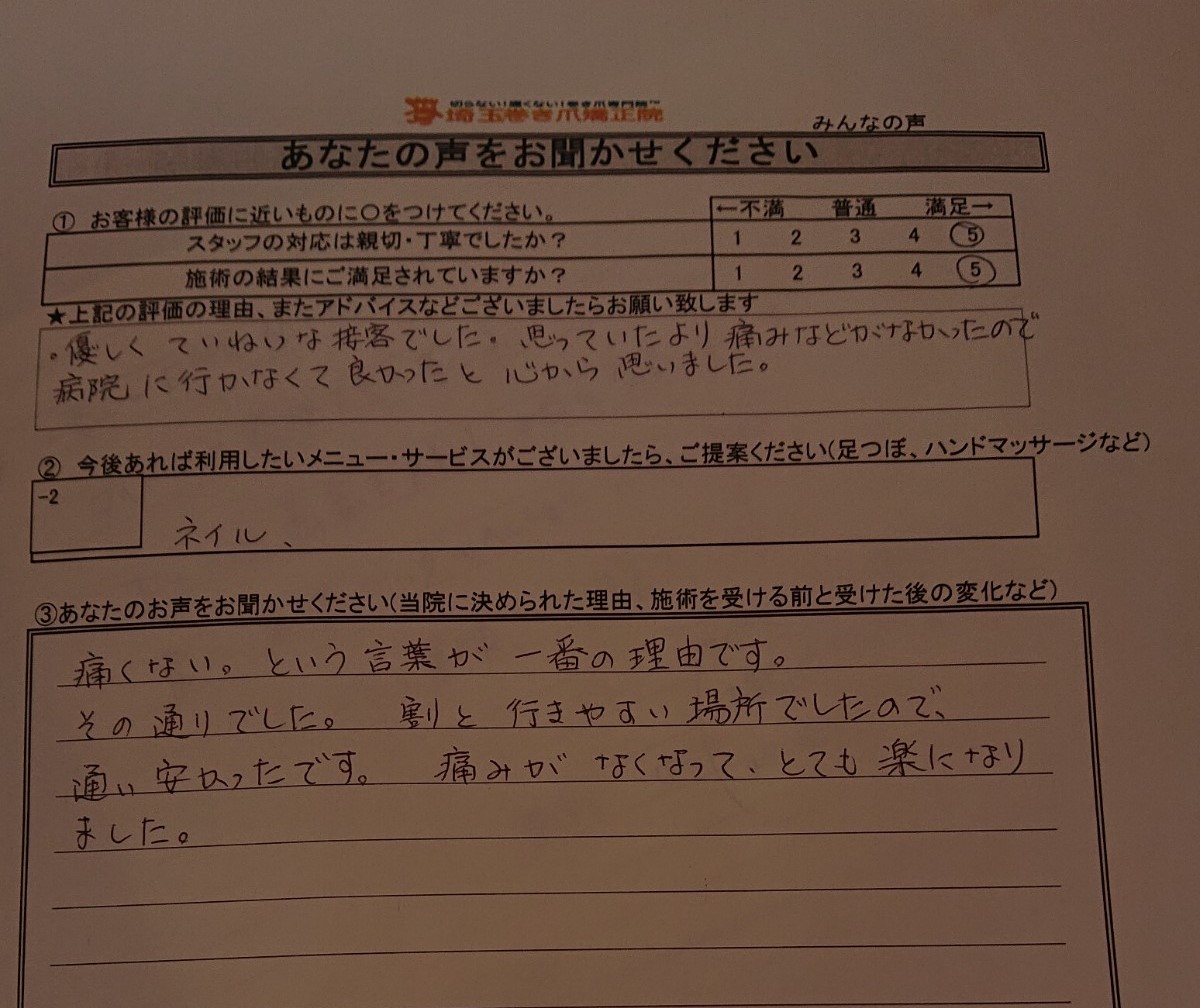 切らない!痛くない!巻き爪専門院~
埼玉巻き爪矯正院
みんなの声
あなたの声をお聞かせください
① お客様の評価に近いものに〇をつけてください。
←不満 普通 満足→
スタッフの対応は親切・丁寧でしたか? 1 2 3 4 5
施術の結果にご満足されていますか? 1 2 3 4 5
★上記の評価の理由、またアドバイスなどございましたらお願い致します
・優しく ていねいな接客でした。思っていたより痛みなどがなかったので
病院に行かなくて良かったと心から思いました。
② 今後あれば利用したいメニュー・サービスがございましたら、ご提案ください(足つぼ、ハンドマッサージなど)
-2
ネイル、
③あなたのお声をお聞かせください(当院に決められた理由、施術を受ける前と受けた後の変化など)
痛くない。という言葉が一番の理由です。
その通りでした。 割と行きやすい場所でしたので、
通い安かったです。 痛みがなくなって、とても楽になり
ました。